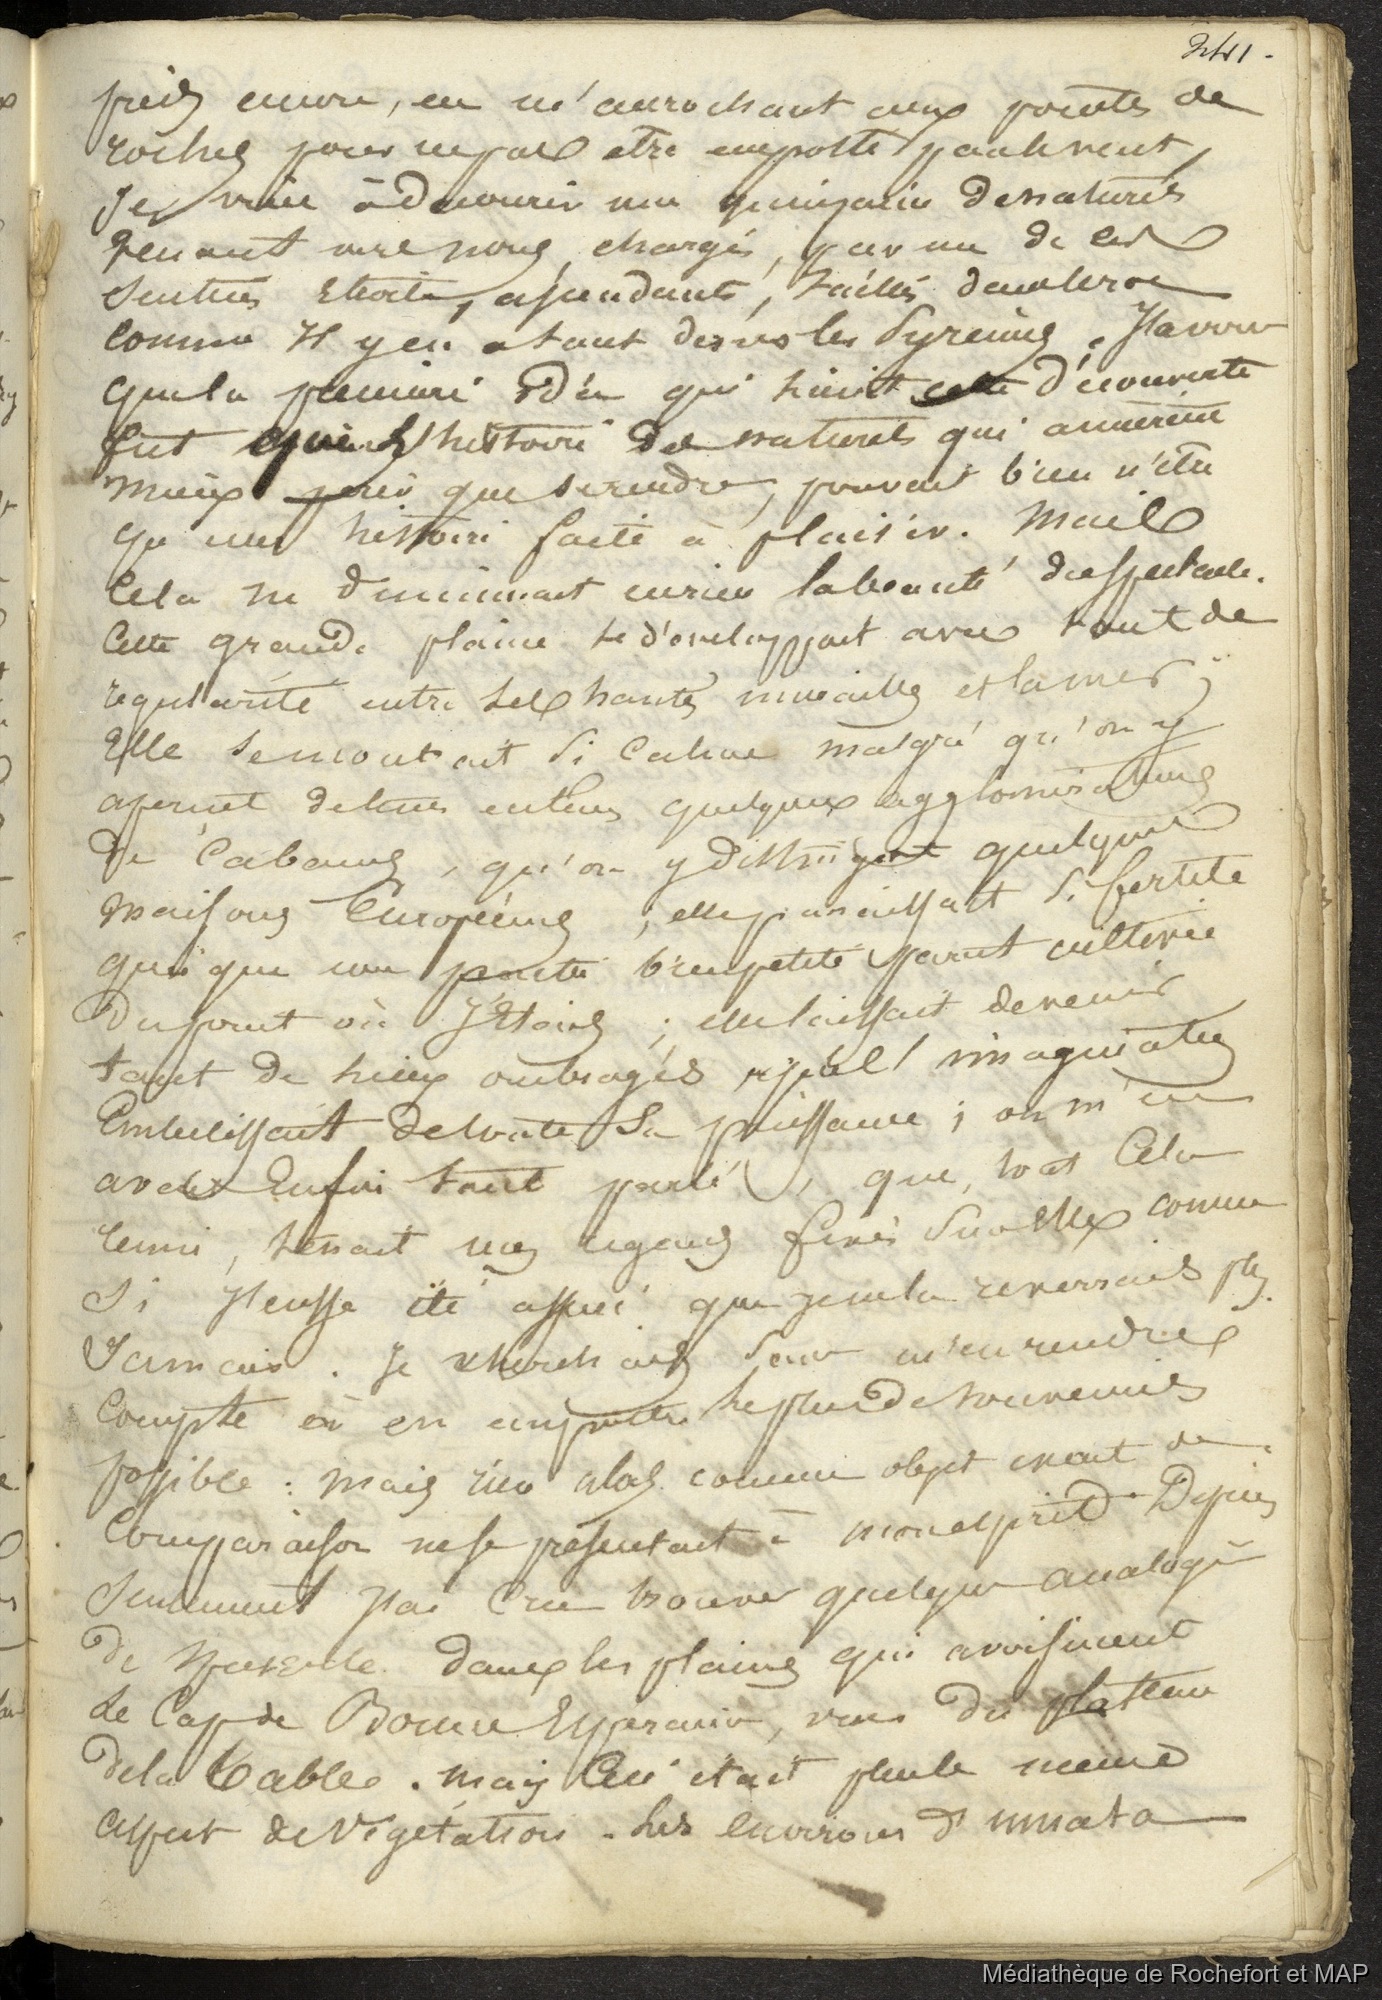 241.
pieds encore, en m'accrochant aux pointes de
roches pour ne pas etre emporté par le vent,
Je vins à decouvrir une de naturels
venant vers nous, chargés, par un de ces
sentiers étroits, , taillés dans le roc
comme Il y en a tant dans les Pyrénées. J'avoue
que la premiere idée qui suivit cette découverte
fut que l'histoire des naturels qui aimerent
mieux perir que se rendre, pouvait bien n'etre
qu'une histoire faite à plaisir. Mais
Cela ne diminuait en rien la beauté du spectacle.
Cette grande plaine se développait avec tant de
regularité entre ses hautes murailles et la mer;
Elle se montrait si calme malgré qu'on y
aperçut de tems en tems quelques agglomérations
de Cabanes, qu'on y distinguat quelques
maisons Européennes; elle paraissait si fertile
quoique une partie bien petite parut cultivée
du point où J'étois; elle laissait devenir
tant de lieux ombragés, que l'imagination
Embelissait de toute sa puissance; on m'en
avait Enfin tant parlé, que, tout Cela
reuni, tenait mes regards fixés sur Elle comme
Si J'eusse été assuré que je ne la reverrais plus
Jamais. Je cherchais pour m'en rendre
Compte et en emporter le plus de souvenirs
possible: mais rien alors comme objet exact de
Comparaison ne se presentait à mon esprit. Depuis
Seulement J'ai Cru trouver quelque analogie
de dans les plaines qui avoisinent
Le Cap de Bonne Esperance, vues du plateau
de la Table. mais Ce n'était plus le meme
aspect de Végétation. Les Environs d'